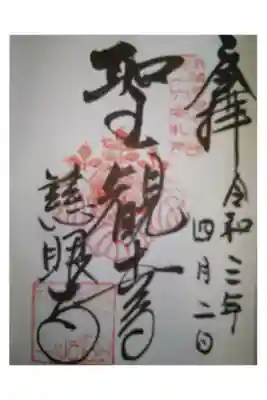 奉拝 令和三年四月二日
聖観世音
慈眼寺